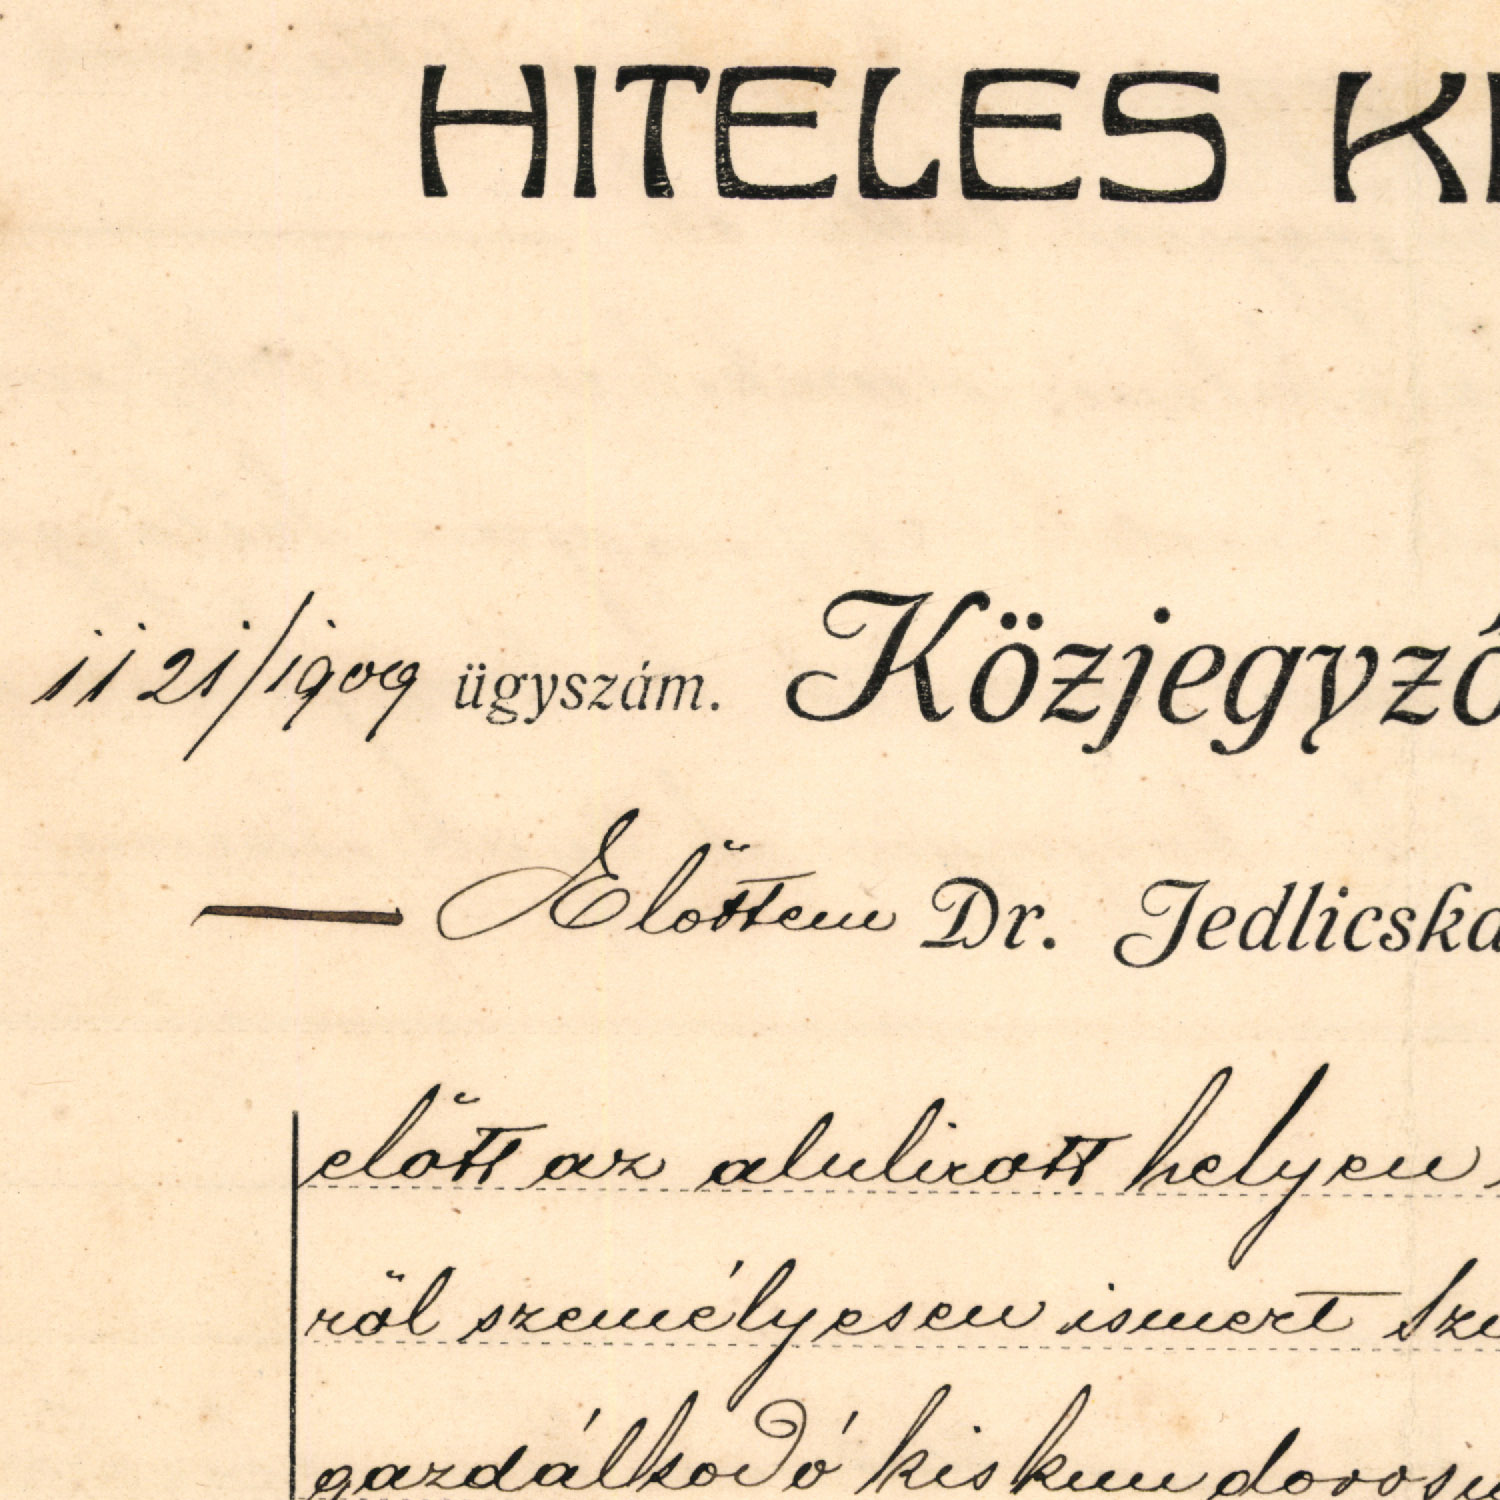 HITELES KI
1121/1909 ügyszám. Közjegyző
— Előttem Dr. Jedlicska
előtt az alulirott helyen
ről személyesen ismert
gazdálkodó kiskun dorosm